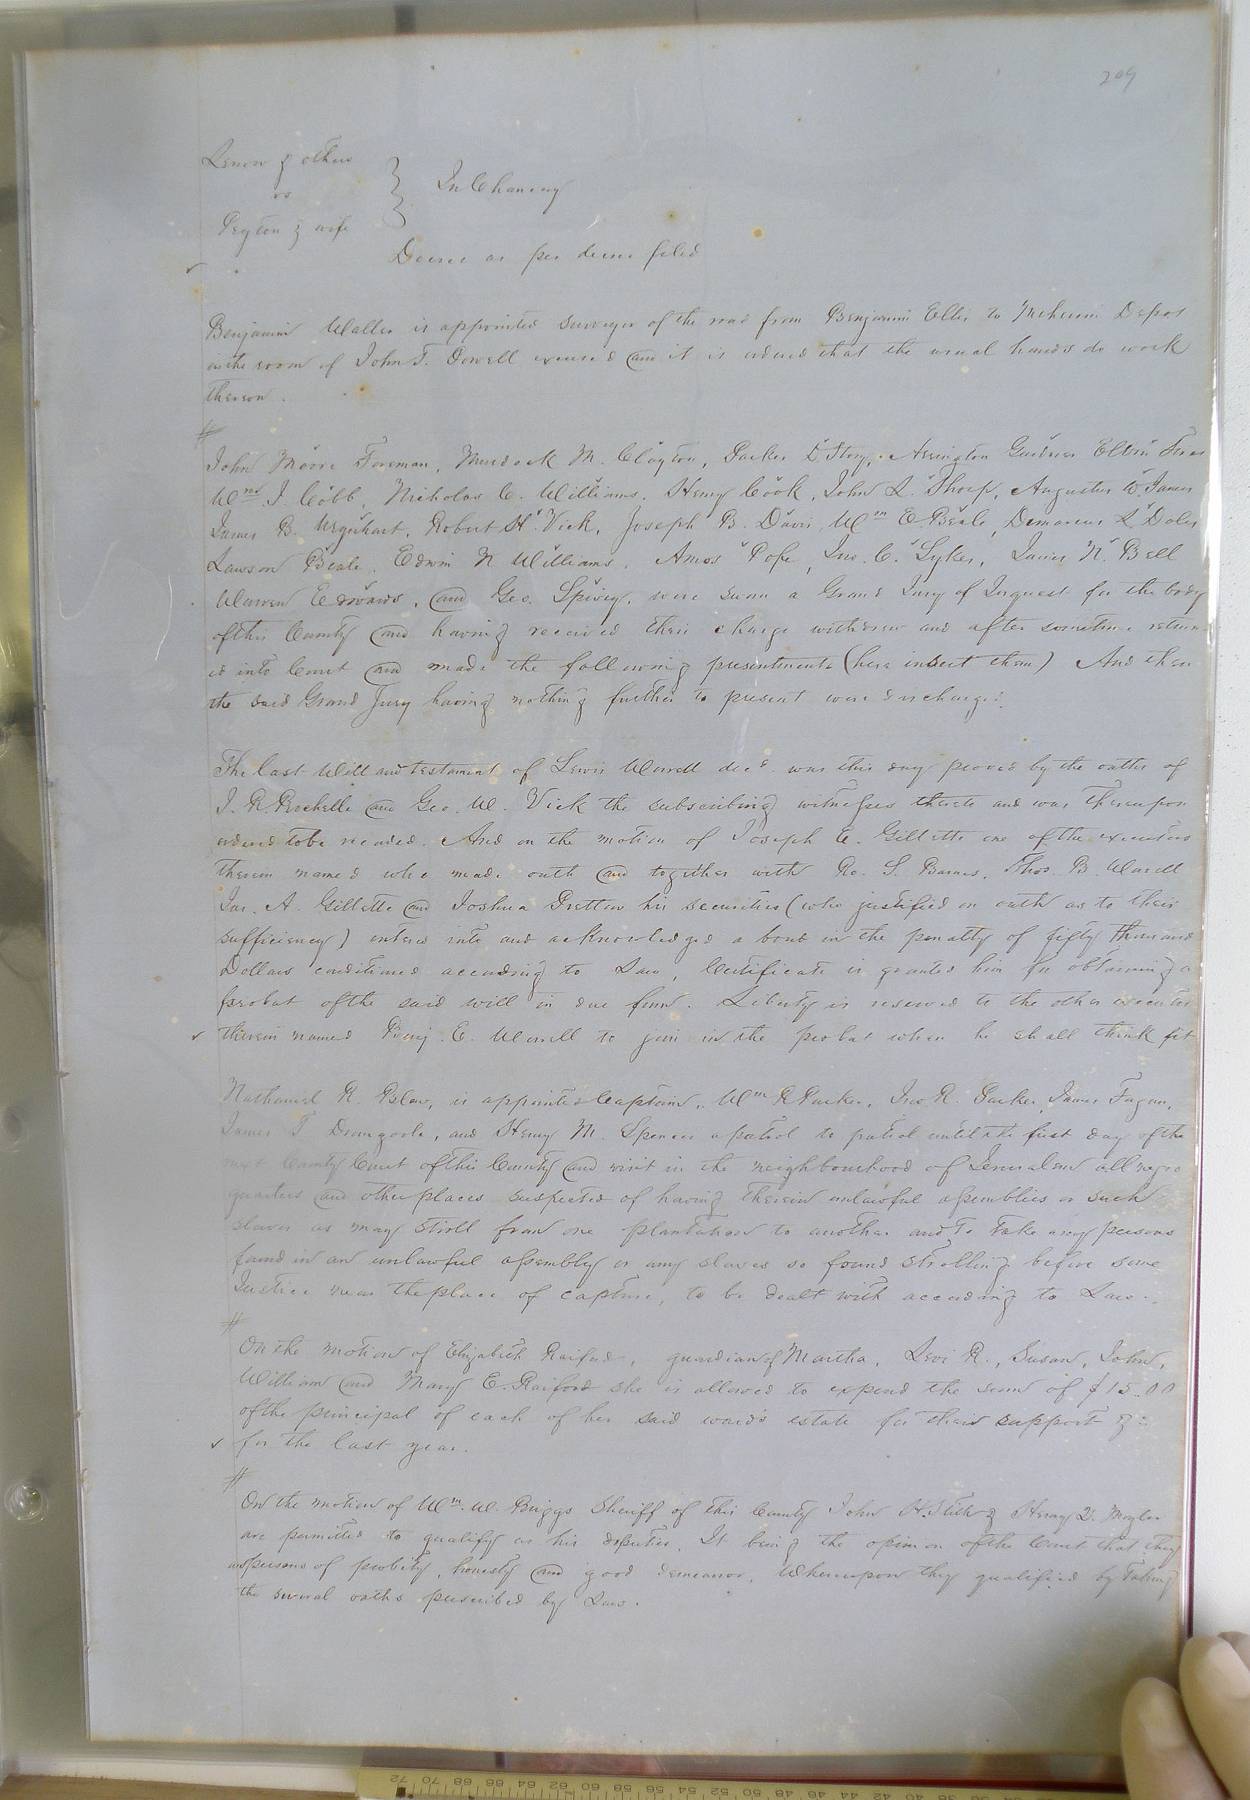 209
Lenow & others
vs
Peyton & wife
In Chancery
Decree as per decree filed
Benjamin Waller is appointed surveyor of the road from Benjamin Ellis to Meherrin Depot
in the room of John T. Dowell excused and it is ordered that the usual hands do work
thereon.
John Moore Foreman, Murdock M. Clayton, Parker D Story, Arrington Gardner Elvin
Wm. J. Cobb, Nicholas C. Williams. Henry Cook, John L. Thorp, Augustus W. James
James B. Urquhart, Robert H. Vick, Joseph B. Davis, Wm E Beale, Demarcus L Doles
Lawson Beale, Edwin N Williams. Amos Pope, Jno. C. Sykes, James N. Bell
Warren Edwards, and Geo. Spivey, were sworn a Grand Jury of Inquest for the body
of this County and having received their charge withdrew and after sometime return
ed into Court and made the following presentments (here insert them) And then
the said Grand Jury having nothing further to present were discharged.
The last Will and testament of Lewis Worrell decd. was this day proved by the oaths of
J. R. Rochelle and Geo. W. Vick the subscribing witnesses thereto and was thereupon
ordered to be recorded. And on the motion of Joseph E. Gillette one of the executors
therein named who made oath and together with Ro. S. Barnes, Thos. B. Worrell
Jas. A. Gillette and Joshua Pretlow his securities (who justified on oath as to their
sufficiency) entered into and acknowledged a bond in the penalty of fifty thousand
Dollars conditioned according to Law, Certificate is granted him for obtaining a
probat of the said will in due form. Liberty is reserved to the other executor
therein named Benj. E. Worrell to join in the probat when he shall think fit
Nathaniel R. Blow, is appointed Captain, Wm R Parker, Jno R. Parker, James Fagan,
James T Dromgoole, and Henry M. Spencer a patrol to patrol until the first day of the
next County Court of this County and visit in the neighbourhood of Jerusalem all negro
quarters and other places suspected of having therein unlawful assemblies or such
slaves as may stroll from one plantation to another and to take any persons
found in an unlawful assembly or any slaves so found strolling before some
Justice near the place of capture, to be dealt with according to Law.
On the motion of Elizabeth Raiford, guardian of Martha, Levi R., Susan, John,
William and Mary E. Raiford she is allowed to expend the sum of $15.00
of the principal of each of her said wards estate for their support &c
for the last year.
On the motion of Wm. W. Briggs Sheriff of this County John H. Stith & Henry D. Moyler
are permitted to qualify as his deputies, It being the opinion of the Court that they
are persons of probity, honesty and good demeanor, Whereupon they qualified by taking
the several oaths prescribed by Law.
72 70 68 66 64 62 60 58 56 54 52 50 48 46 44 42 40 38 36 34